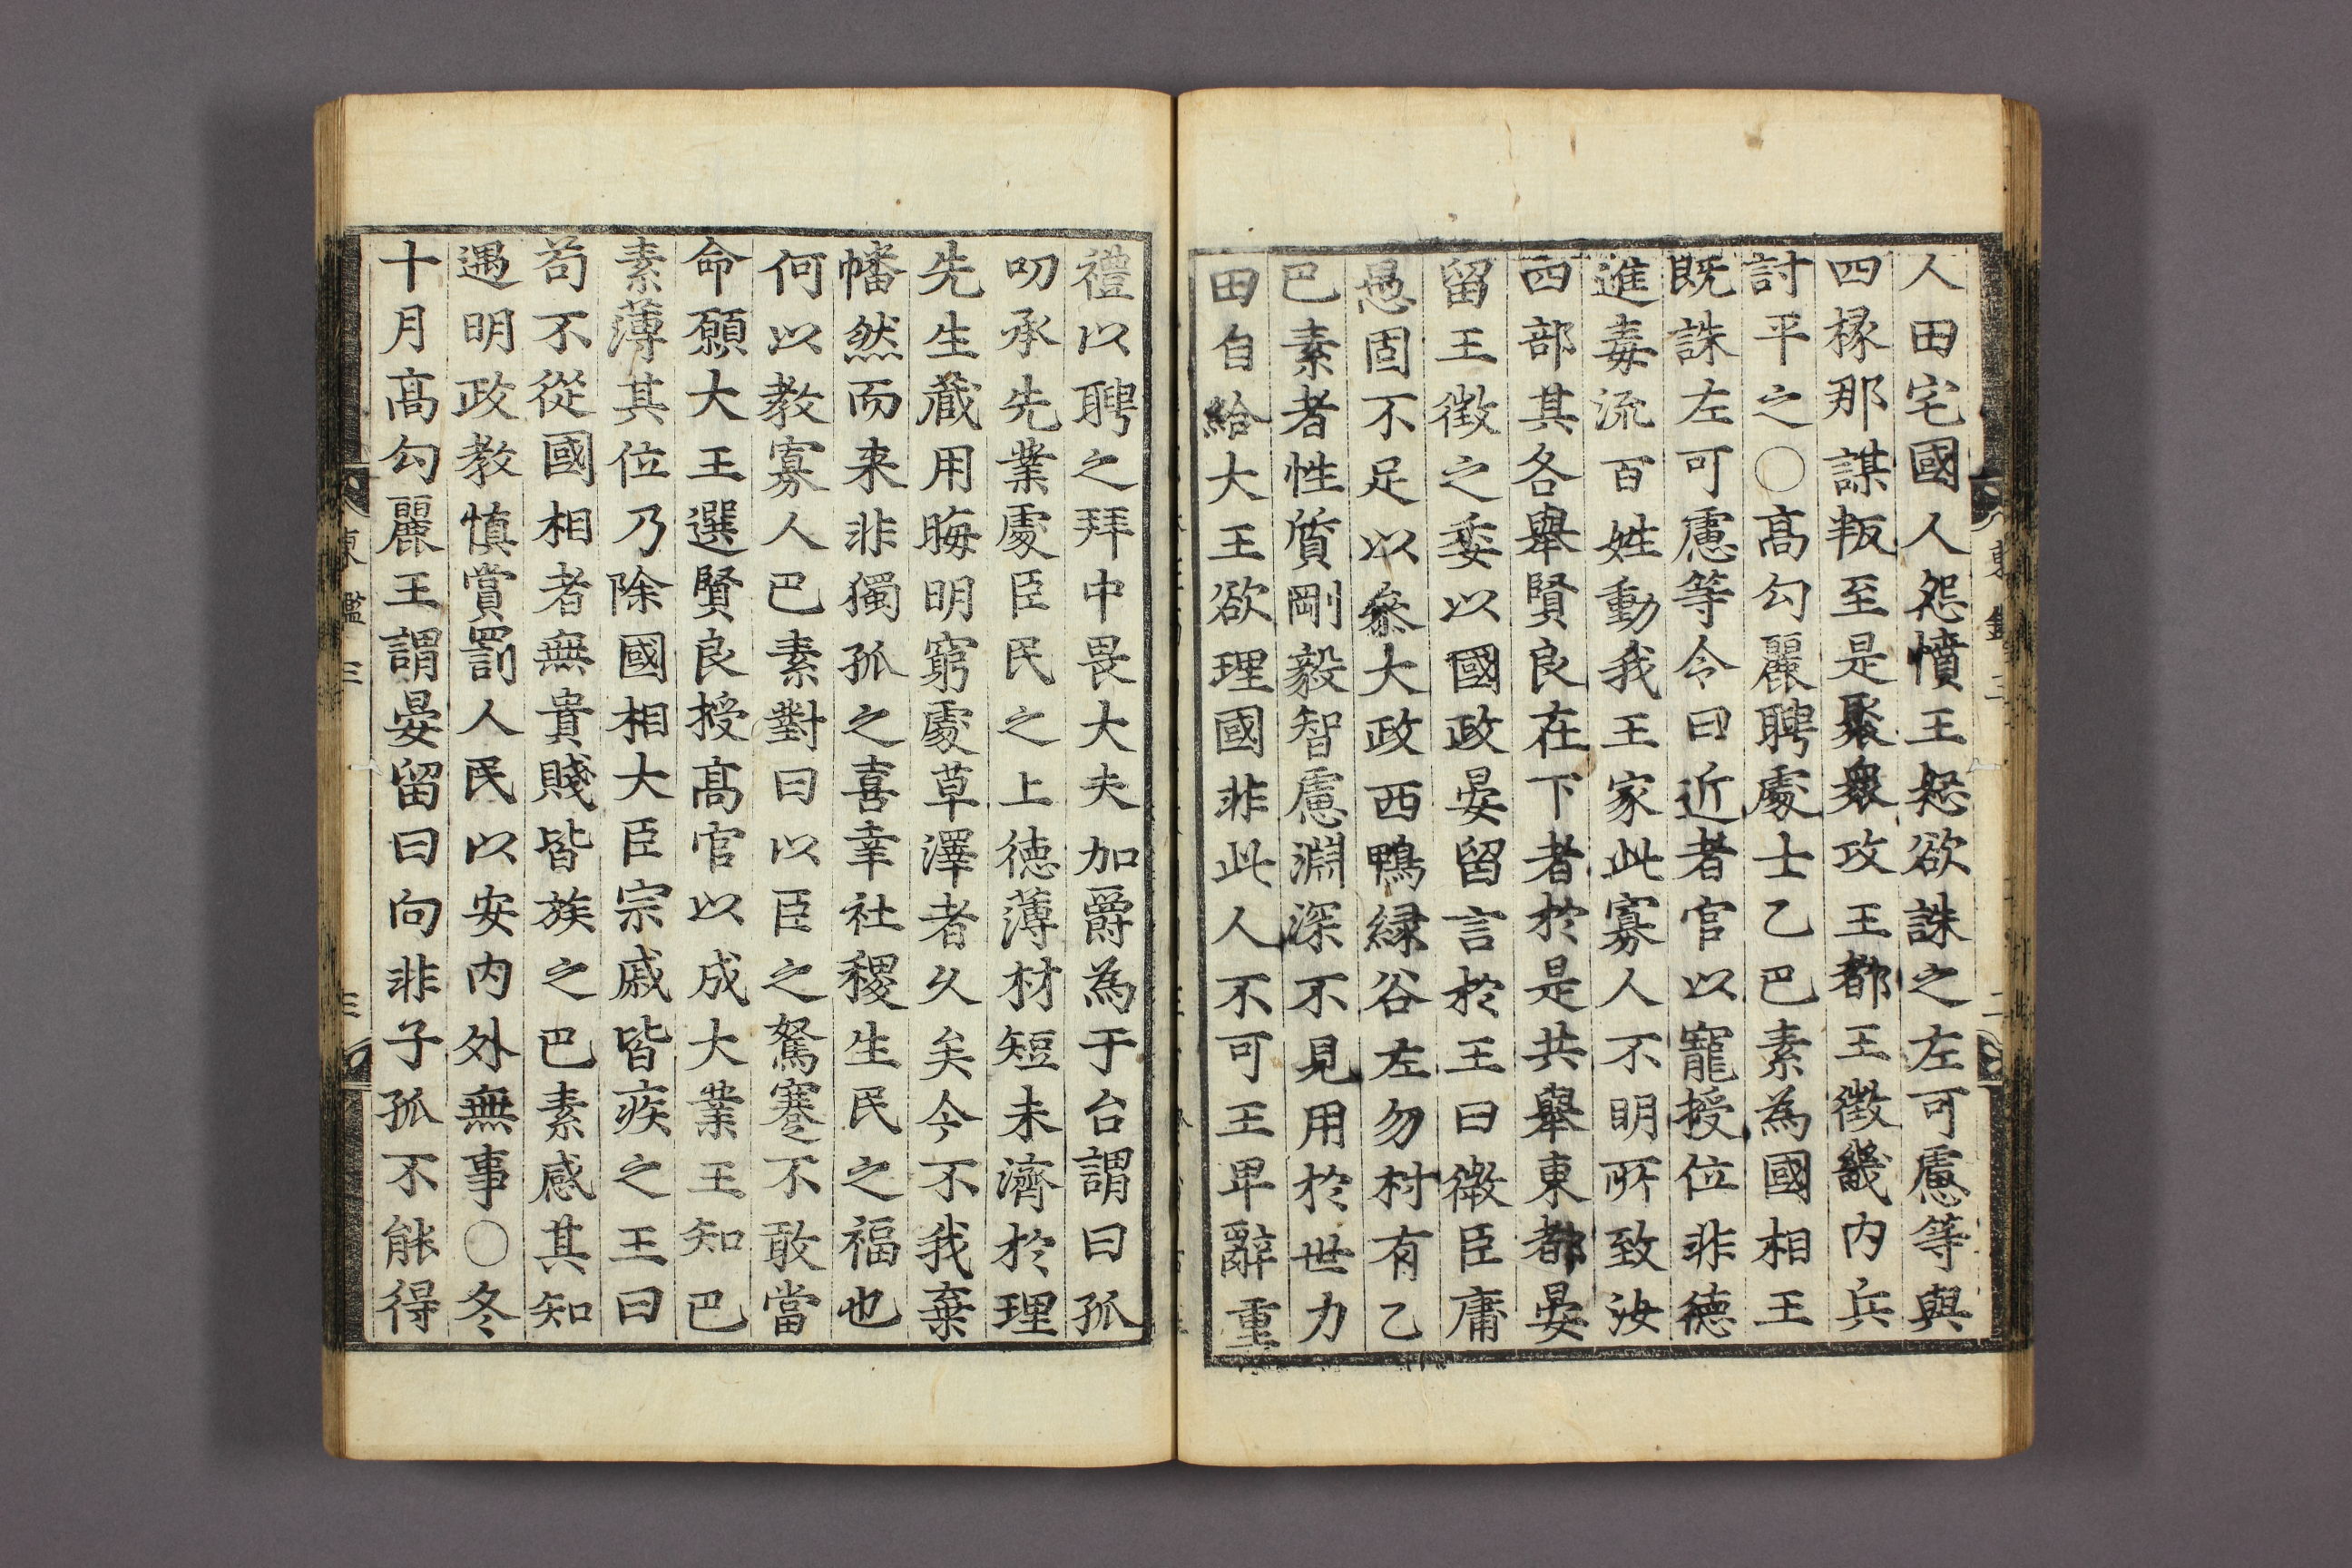 人田宅國人怨憤王怒欲誅之左可慮等與
四椽那謀叛至是聚衆攻王都王徴畿內兵
討平之○高勾麗聘處士乙巴素為國相王
既誅左可慮等令曰近者官以寵授位非德
進毒流百姓動我王家此寡人不明所致汝
四部其各舉賢良在下者於是共舉東都晏
留王徴之委以國政晏留言於王曰微臣庸
愚固不足以叅大政西鴨緑谷左勿村有乙
巴素者性質剛毅智慮淵深不見用於世力
田自給大王欲理國非此人不可王卑辭重
東鑑 三 二
禮以聘之拜中畏大夫加爵為于台謂曰孤
叨承先業處臣民之上德薄材短未濟於理
先生蔵用晦明窮處草澤者久矣今不我棄
幡然而来非獨孤之喜幸社稷生民之福也
何以教寡人巴素對曰以臣之駑蹇不敢當
命願大王選賢良授高官以成大業王知巴
素薄其位乃除國相大臣宗戚皆疾之王曰
苟不從國相者無貴賤皆族之巴素感其知
遇明政教慎賞罰人民以安內外無事○冬
十月高勾麗王謂晏留曰向非子孤不能得
東鑑 三 三